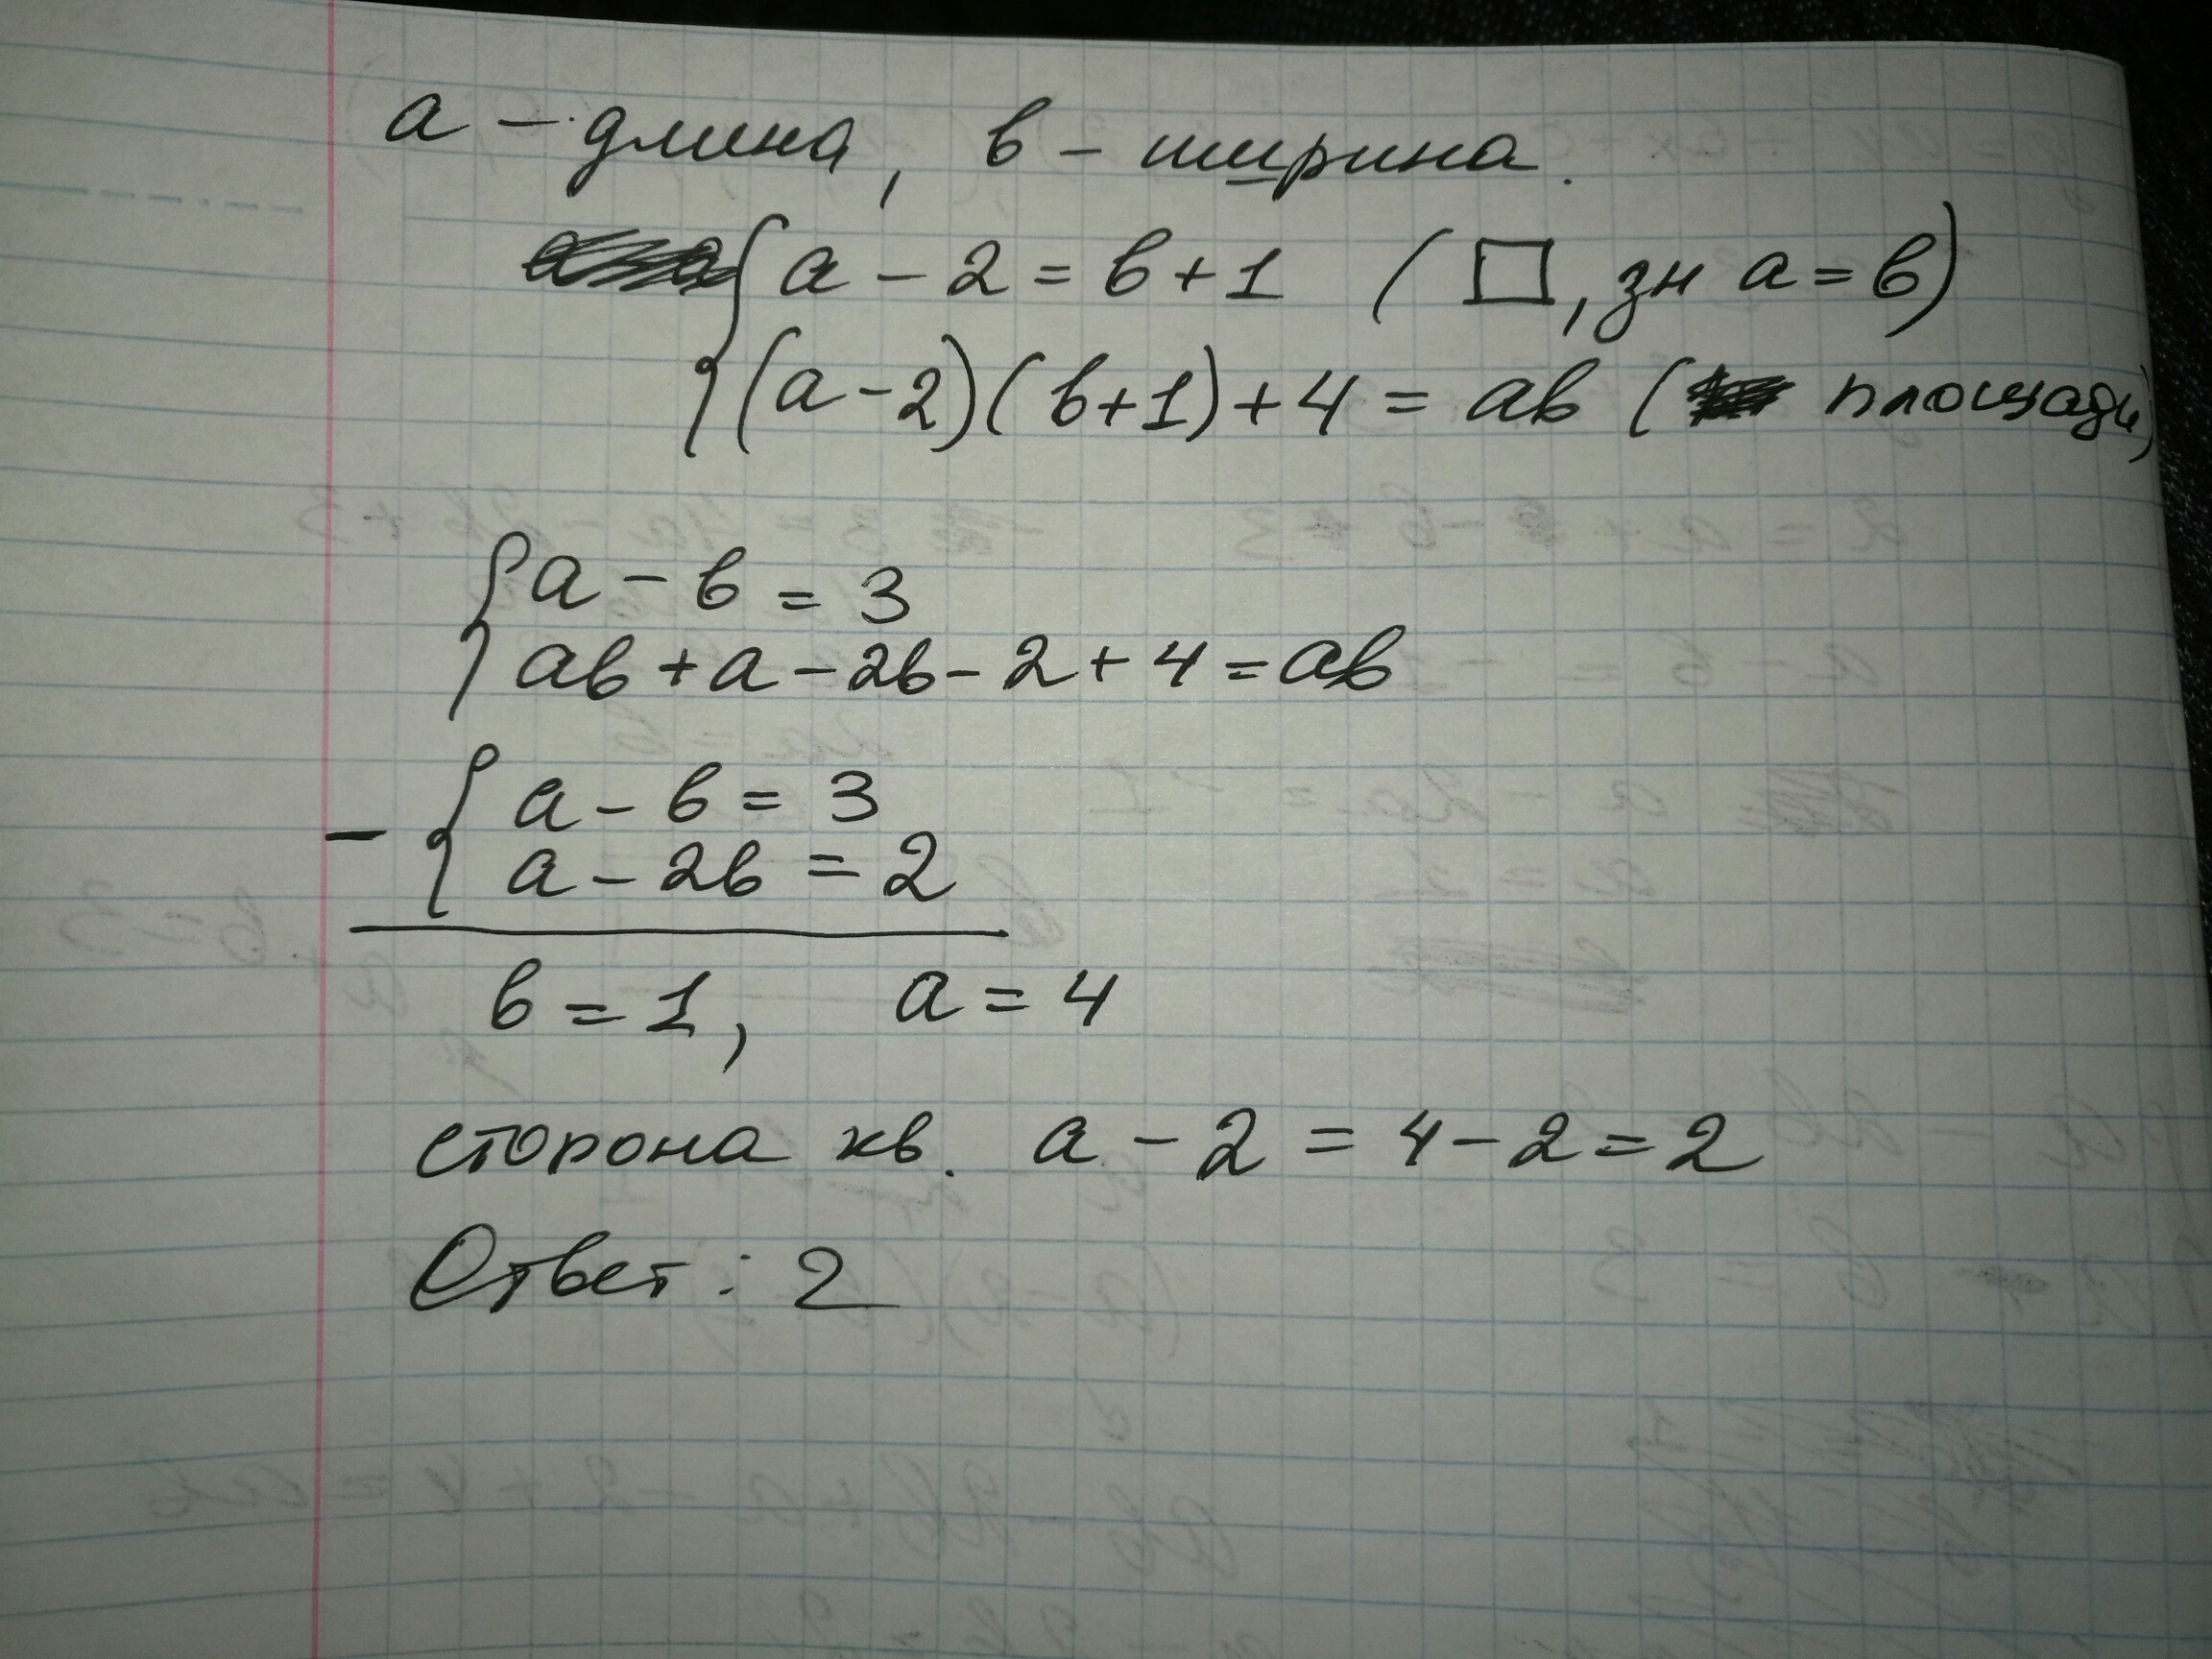 а – длина, в – ширина.
{ а – 2 = в + 1 ( □, зн а = в)
{ (а – 2)( в+1) + 4 = ав ( площади)
{ а – в = 3
{ ав + а – 2в – 2 + 4 = ав
– { а – в = 3
{ а – 2в = 2
в = 1, а = 4
сторона кв. а – 2 = 4 – 2 = 2
Ответ: 2